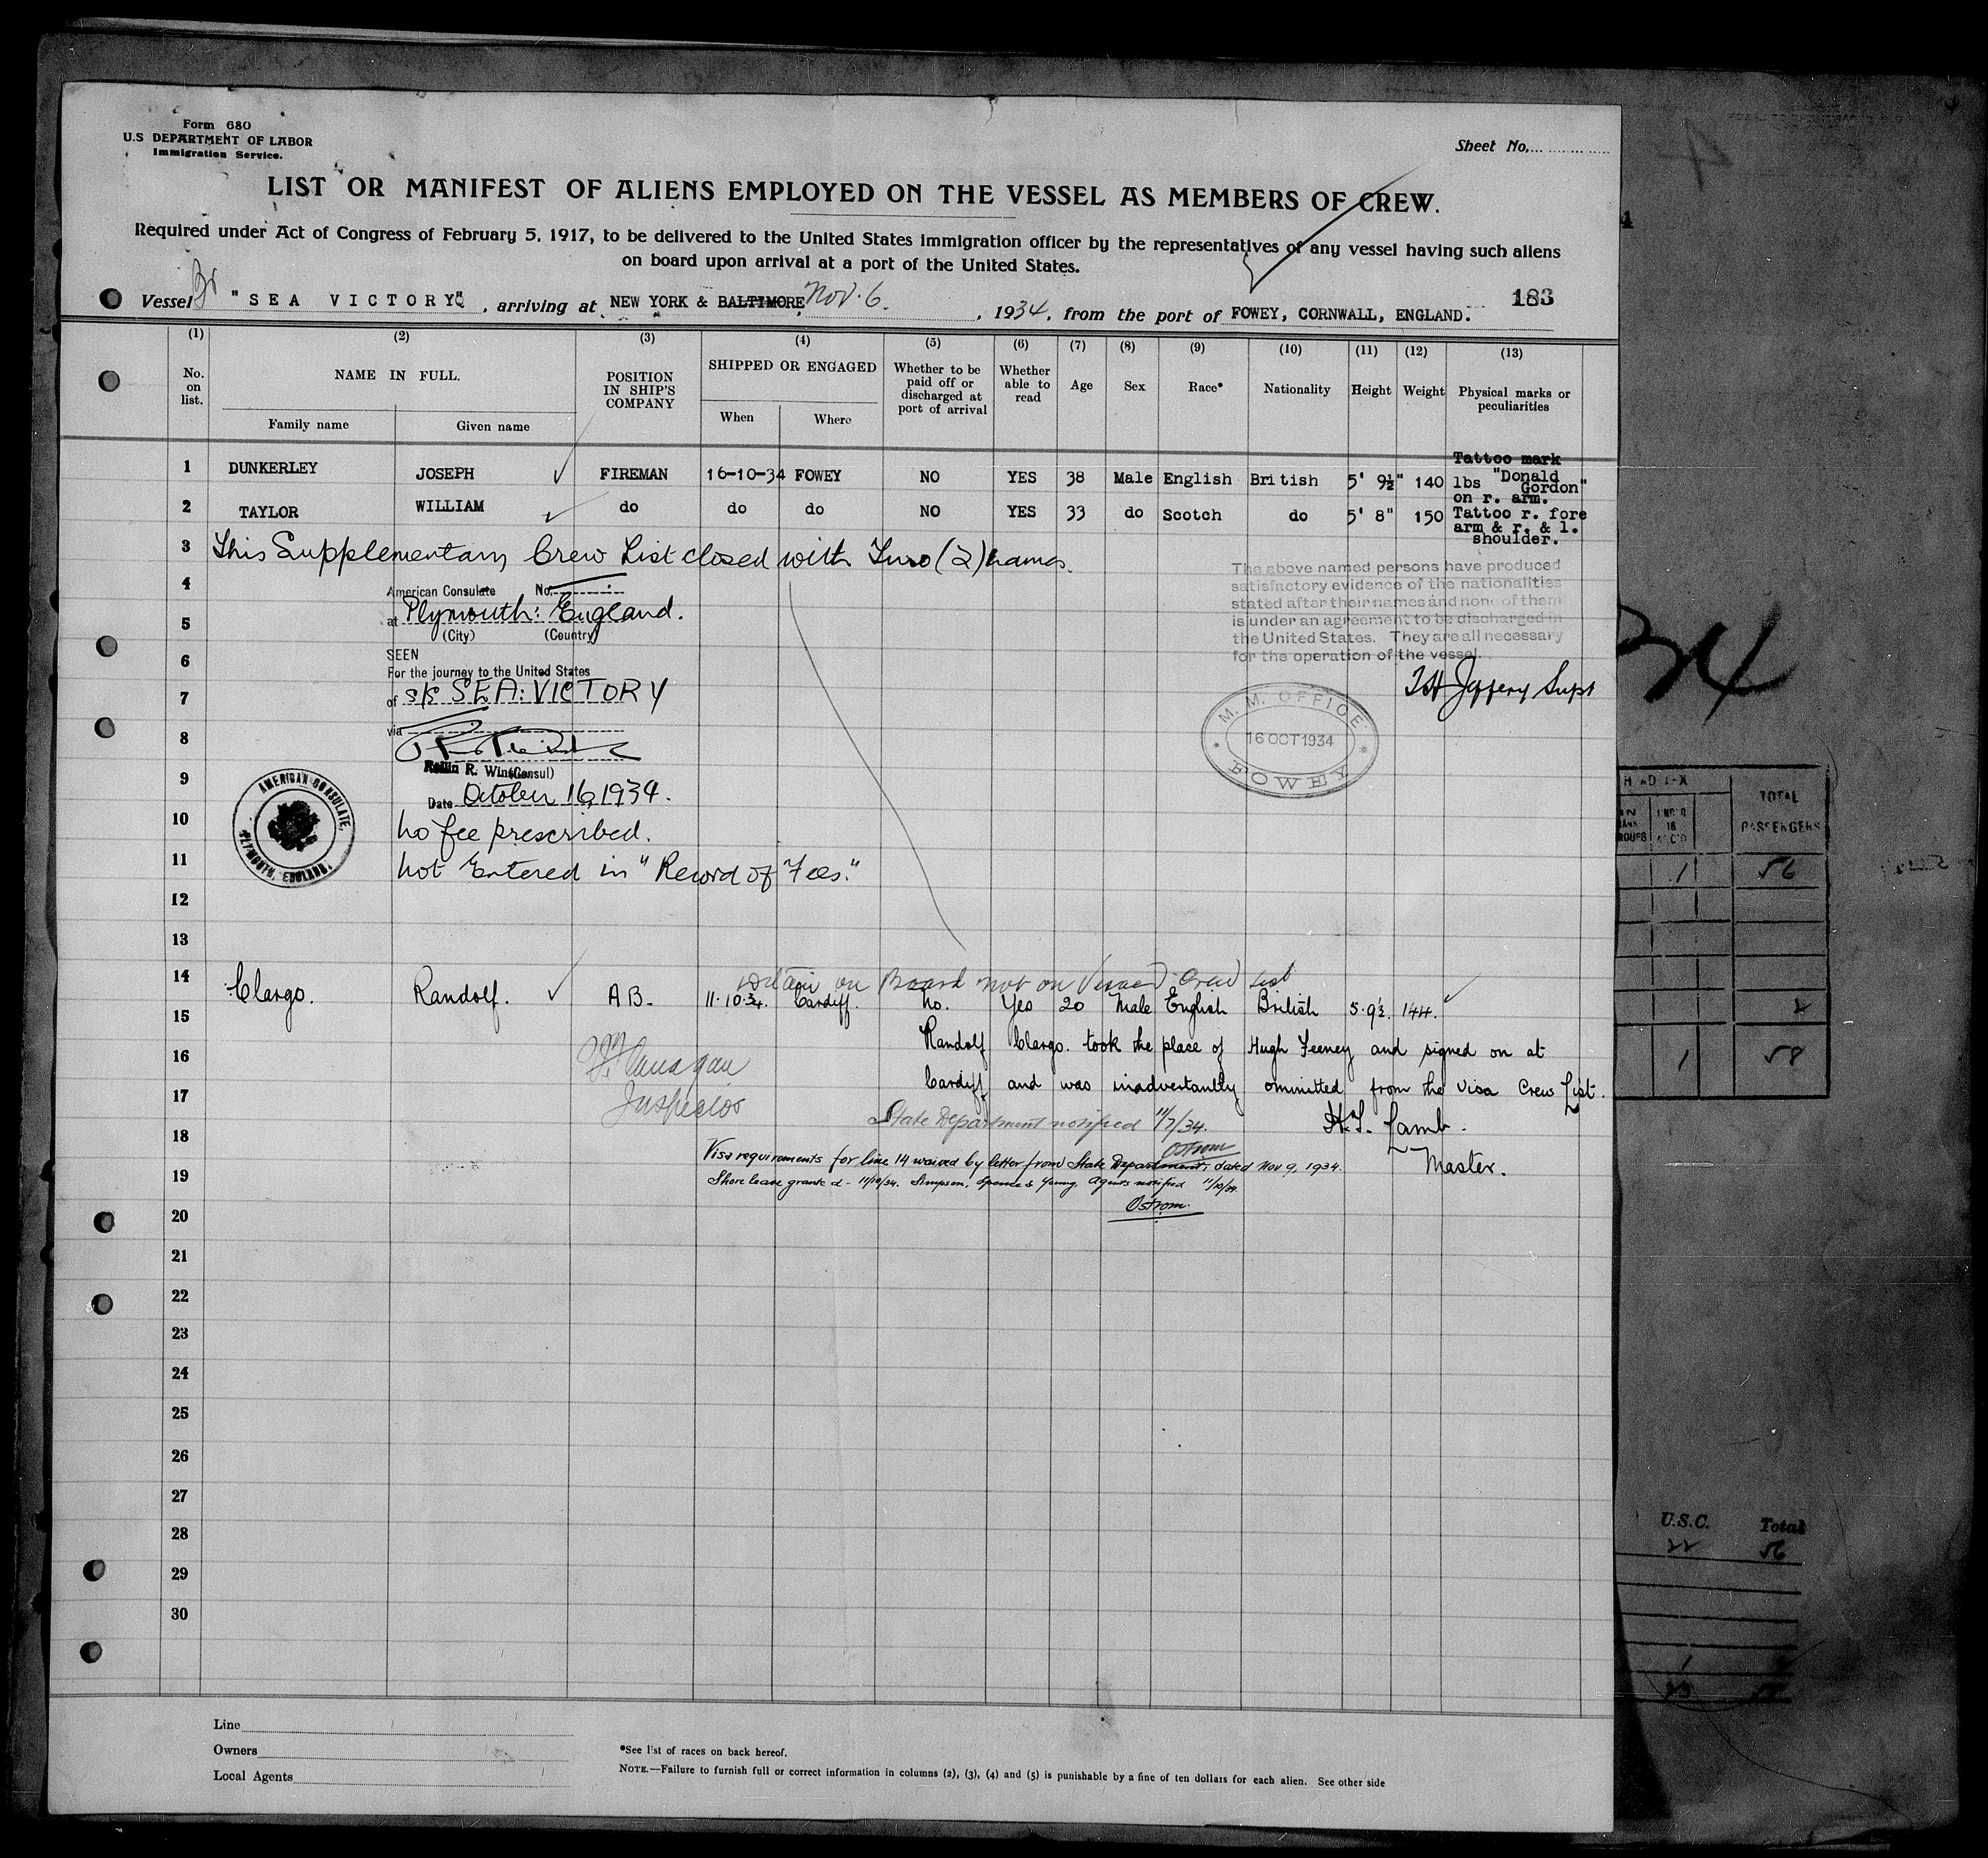 Form 680
U.S DEPARTMENT OF LABOR
Immigration Service.
Sheet No.
LIST OR MANIFEST OF ALIENS EMPLOYED ON THE VESSEL AS MEMBERS OF CREW.
Required under Act of Congress of February 5, 1917, to be delivered to the United States immigration officer by the representatives of any vessel having such aliens
on board upon arrival at a port of the United States.
Vessel Br "SEA VICTORY", arriving at NEW YORK & BALTIMORE Nov. 6, 1934, from the port of FOWEY, CORNWALL, ENGLAND. 183
(1) (2) (3) (4) (5) (6) (7) (8) (9) (10) (11) (12) (13)
No. on list. NAME IN FULL. POSITION IN SHIP'S COMPANY SHIPPED OR ENGAGED Whether to be paid off or discharged at port of arrival Whether able to read Age Sex Race* Nationality Height Weight Physical marks or peculiarities
Family name Given name When Where
1 DUNKERLEY JOSEPH FIREMAN 16-10-34 FOWEY NO YES 38 Male English British 5' 9½" 140 lbs Tattoo mark "Donald Gordon" on r. arm.
2 TAYLOR WILLIAM do do do NO YES 33 do Scotch do 5' 8" 150 Tattoo r. fore arm & r. & l. shoulder.
3 This Supplementary Crew List closed with Two (2) names.
The above named persons have produced
satisfactory evidence of the nationalities
stated after their names and none of them
is under an agreement to be discharged in
the United States. They are all necessary
for the operation of the vessel.
Jeffery Supt
M. M. OFFICE
16 OCT 1934
FOWEY
4 American Consulate No.
5 at Plymouth: England.
(City) (Country)
6 SEEN
For the journey to the United States
7 of s/s SEA: VICTORY
8 via
9 R. Wins (Consul)
Date October 16, 1934.
10 no fee prescribed.
11 not Entered in "Record of Fees."
AMERICAN CONSULATE,
PLYMOUTH, ENGLAND.
12
13
14 Detain on Board not on Visaed Crew List
Clargo. Randolf. AB. 11.10.34. Cardiff. No. Yes 20 Male English British 5.9½. 144.
15
16 Randolf Clargo. took the place of Hugh Feeney and signed on at
17 Cardiff and was inadvertantly ommitted from the Visa Crew List.
Flanagan
Inspector
State Department notified 11/7/34.
Ostrom
18 H. Lamb.
Master.
Visa requirements for line 14 waived by letter from State Department, dated Nov 9, 1934.
19 Shore leave granted - 11/10/34. Simpson, Spence & Young, Agents notified 11/10/34.
20 Ostrom.
21
22
23
24
25
26
27
28
29
30
Line
Owners
Local Agents
*See list of races on back hereof.
NOTE.—Failure to furnish full or correct information in columns (2), (3), (4) and (5) is punishable by a fine of ten dollars for each alien. See other side
34
TOTAL
PASSENGERS
1 56
1 58
U.S.C. Total
22 56